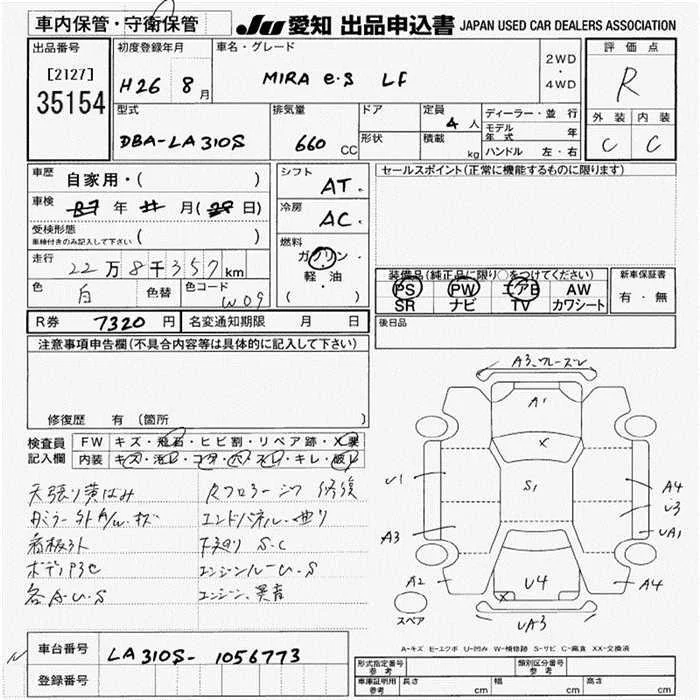 車内保管・守衛保管 JU 愛知 出品申込書 JAPAN USED CAR DEALERS ASSOCIATION
出品番号 初度登録年月 車名・グレード 評価点
[2127] H26 8月 MIRA e.S Lf 2WD・4WD R
35154
型式 排気量 ドア 定員 4人 ディーラー・並行 外装 内装
DBA-LA310S 660 CC 形状 積載 kg モデル年式 年 C C
ハンドル 左・右
車歴 自家用・( ) シフト AT. セールスポイント(正常に機能するものに限ります)
車検 年 月( 日) 冷房 AC.
受検形態 ( )
車検付きのみ記入して下さい
燃料
ガソリン・
軽・油
( )
走行 22万8千357km
装備品(純正品に限り○をつけてください) 新車保証書
PS PW エアB AW 有・無
SR ナビ TV カワシート
色 白 色替 色コード W09
R券 7320円 名変通知期限 月 日 後日品
注意事項申告欄(不具合内容等は具体的に記入して下さい)
修復歴 有(箇所 )
検査員 FW キズ・飛石・ヒビ割・リペア跡・X要
記入欄 内装 キズ・汚レ・コゲ・穴・スレ・キレ・破レ
天張り黄ばみ 修復
エンドパネル・曲り
看板外 下廻り S.C
ボディP3C エンジンルーム.S
各A.U.S エンジン異音
A3 A1 X S1 U1 A3 A2 A4 U3 UA1 A4 X U4 UA3
スペア
A-キズ E-エクボ U-凹み W-補修跡 S-サビ C-腐食 XX-交換済
車台番号 LA310S-1056773
登録番号
形式指定番号 参考 類別区分番号 参考
車庫証明用 参考 長さ cm 幅 cm 高さ cm